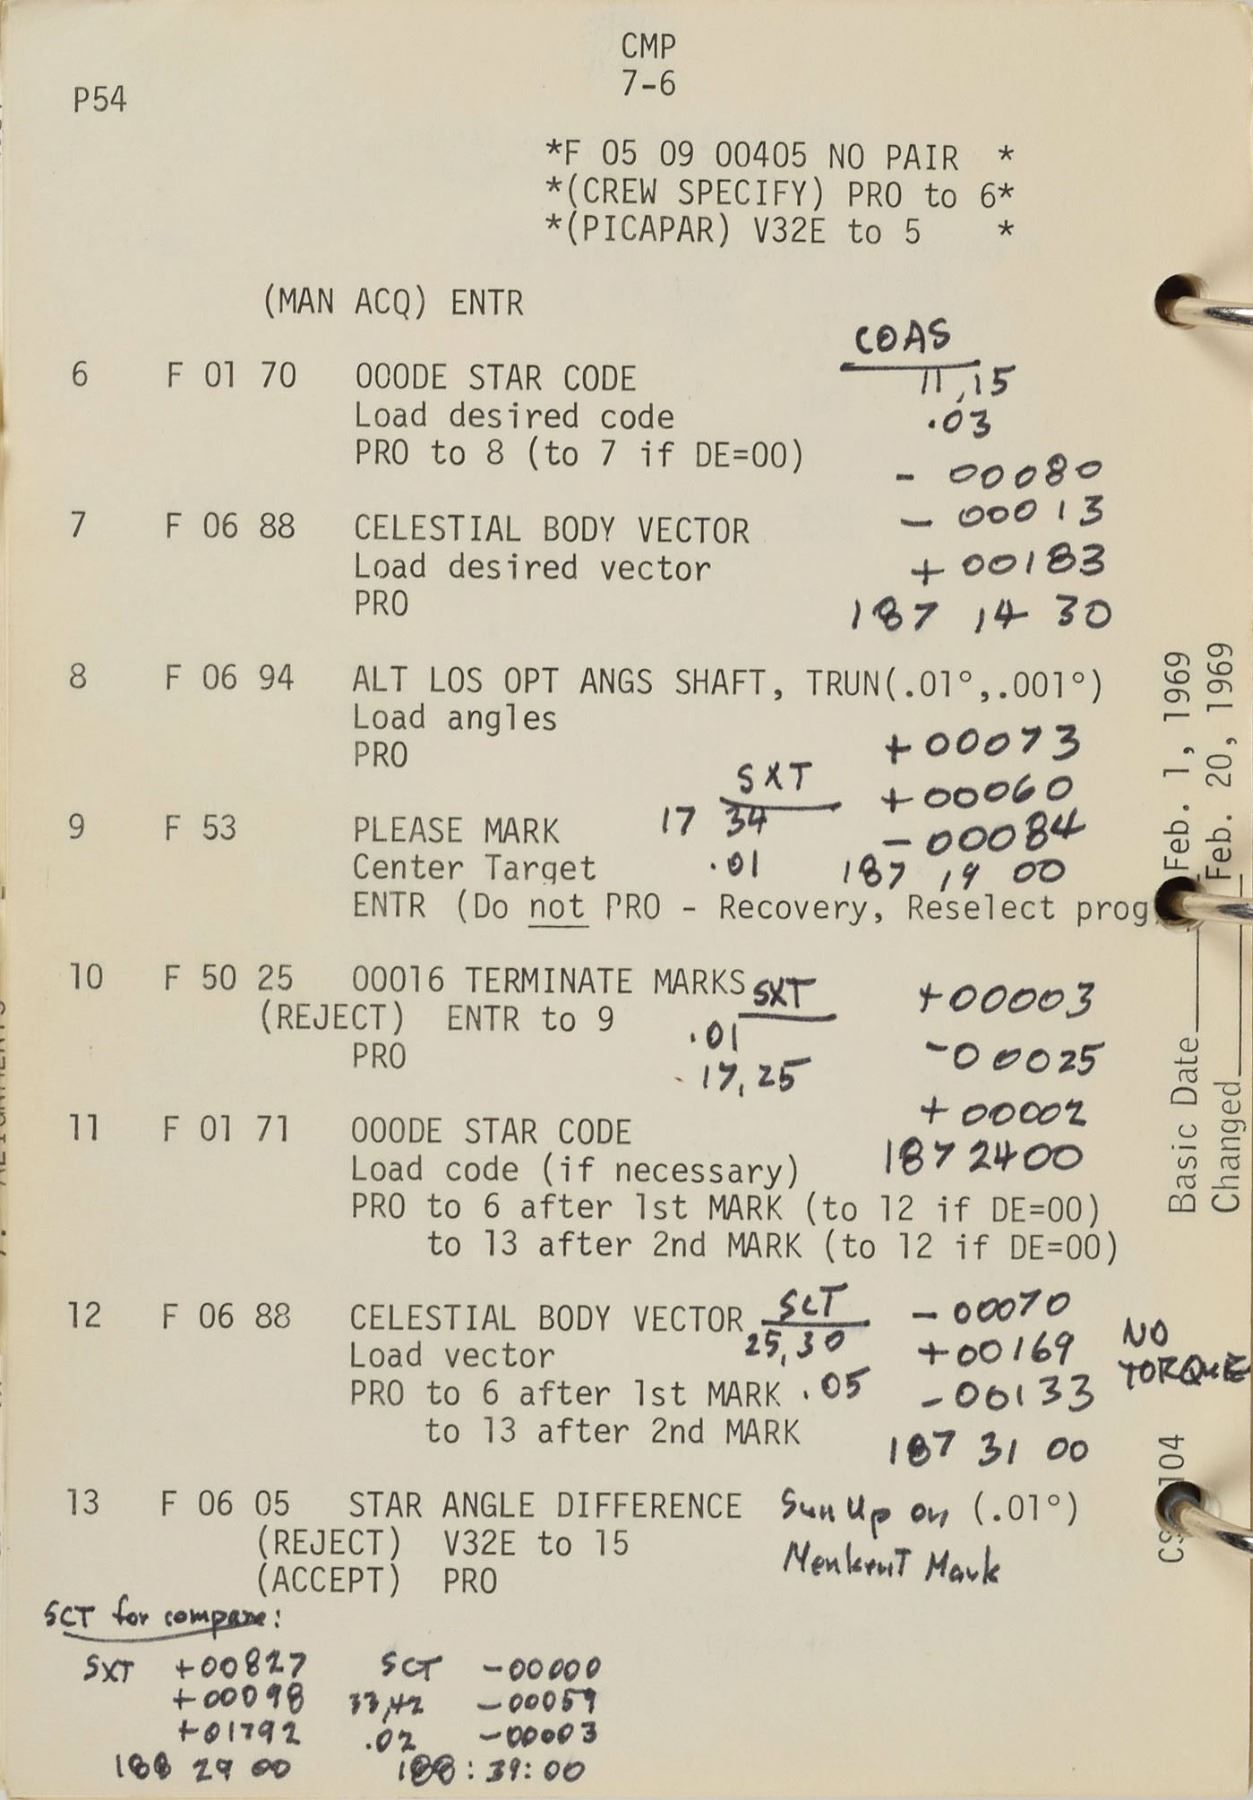 CMP
7-6
P54
*F 05 09 00405 NO PAIR *
*(CREW SPECIFY) PRO to 6*
*(PICAPAR) V32E to 5 *
(MAN ACQ) ENTR
COAS
6 F 01 70 000DE STAR CODE 11,15
Load desired code .03
PRO to 8 (to 7 if DE=00) - 00080
7 F 06 88 CELESTIAL BODY VECTOR - 00013
Load desired vector + 00183
PRO 187 14 30
8 F 06 94 ALT LOS OPT ANGS SHAFT, TRUN(.01°,.001°)
Load angles
PRO +00073
SXT +00060
9 F 53 PLEASE MARK 17 34 -00084
Center Target .01 187 19 00
ENTR (Do not PRO - Recovery, Reselect prog
10 F 50 25 00016 TERMINATE MARKS SXT +00003
(REJECT) ENTR to 9 .01
PRO -00025
17,25
+00002
11 F 01 71 000DE STAR CODE
187 24 00
Load code (if necessary)
PRO to 6 after 1st MARK (to 12 if DE=00)
to 13 after 2nd MARK (to 12 if DE=00)
12 F 06 88 CELESTIAL BODY VECTOR SCT -00070
Load vector 25,30 +00169 NO
PRO to 6 after 1st MARK .05 -00133 TORQUE
to 13 after 2nd MARK 187 31 00
13 F 06 05 STAR ANGLE DIFFERENCE Sun Up on (.01°)
(REJECT) V32E to 15
Menkent Mark
(ACCEPT) PRO
SCT for compare:
SXT +00827 SCT -00000
+00098 33,42 -00059
+01792 .02 -00003
188 29 00 188:39:00
Basic Date Feb. 1, 1969
Changed Feb. 20, 1969
104